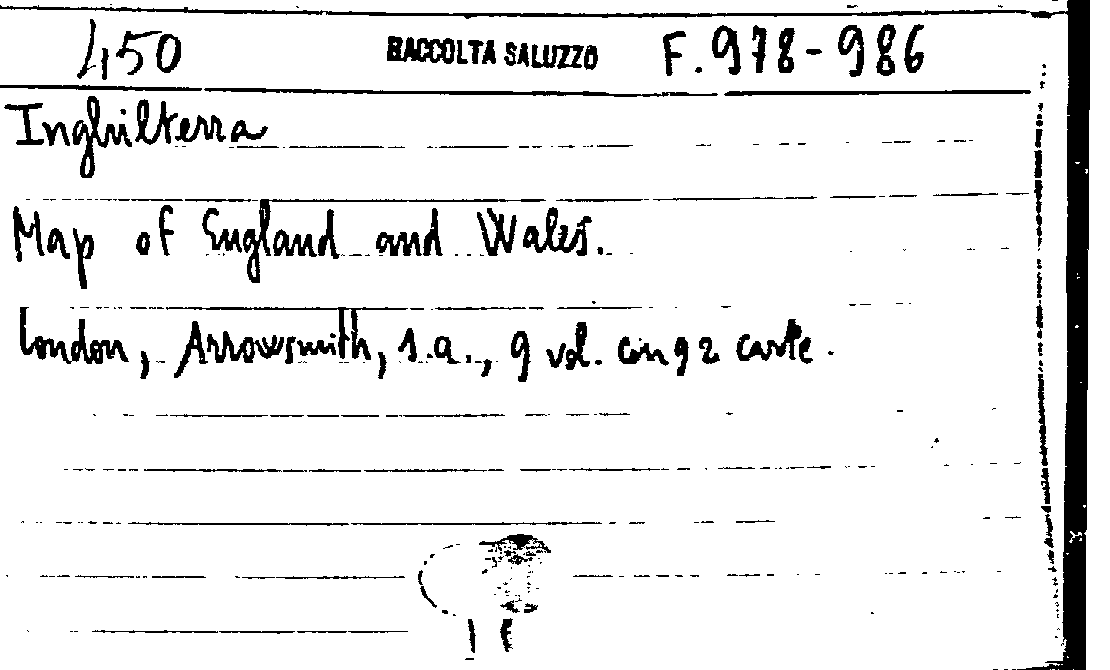 450 RACCOLTA SALUZZO F. 978-986
Inghilterra
Map of England and Wales.
London, Arrowsmith, s.a., 9 vol. con 92 carte.